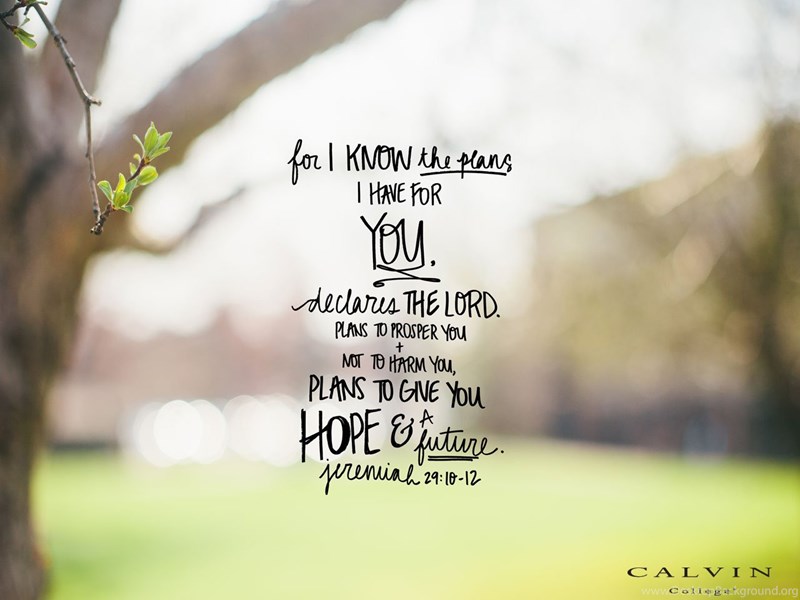 for I KNOW the plans
I HAVE FOR
YOU,
declares THE LORD.
PLANS TO PROSPER YOU
+
NOT TO HARM YOU,
PLANS TO GIVE YOU
HOPE & A future.
jeremiah 29:10-12
CALVIN
College